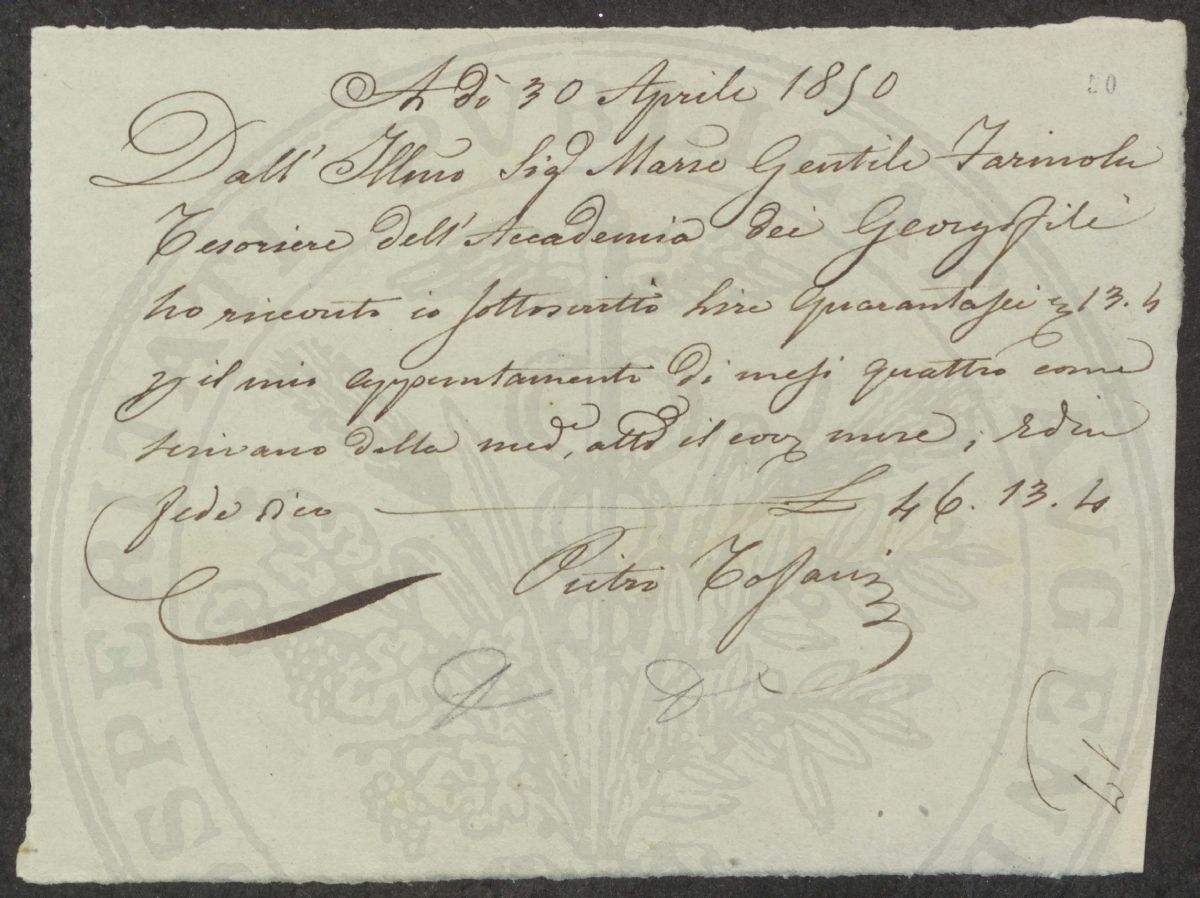 A dì 30 Aprile 1850
50
Dall' Illmo Sig Marse Gentile Farinola
Tesoriere dell'Accademia dei Georgofili
ho ricevuto io sottoscritto Lire Quarantasei 13.4
il mio appuntamento di mesi quattro come
scrivano della med, il mese; ed in
fede dico £ 46.13.4
Pietro Tofani
PROSPERITATI PUBLICAE AUGENDAE